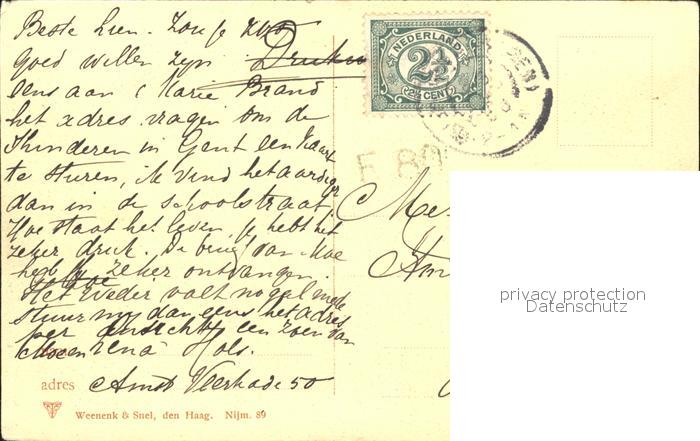 Beste Lien. Zou je zoo
goed willen zijn Drukw
eens aan Marie Brand
het adres vragen om de
kinderen in Gent een kaart
te sturen, ik vind het aardiger
dan in de schoolstraat.
Hoe staat het leven, je hebt het
zeker druk. De brief van Moe
heb je zeker ontvangen.
Het weder valt nogal mede
stuur my dan eens het adres
per ansicht, een zoen van
Hols.
adres Amst Veerkade 50
Weenenk & Snel, den Haag. Nijm. 89
NEDERLAND
2½
(2½ CENT)
E 80
Me
Am
privacy protection
Datenschutz